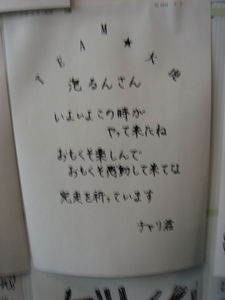 TEAM★大
泡るんさん
いよいよこの時が
やって来たね
おもくそ楽しんで
おもくそ感動して来てな
完走を祈っています
チャリ君